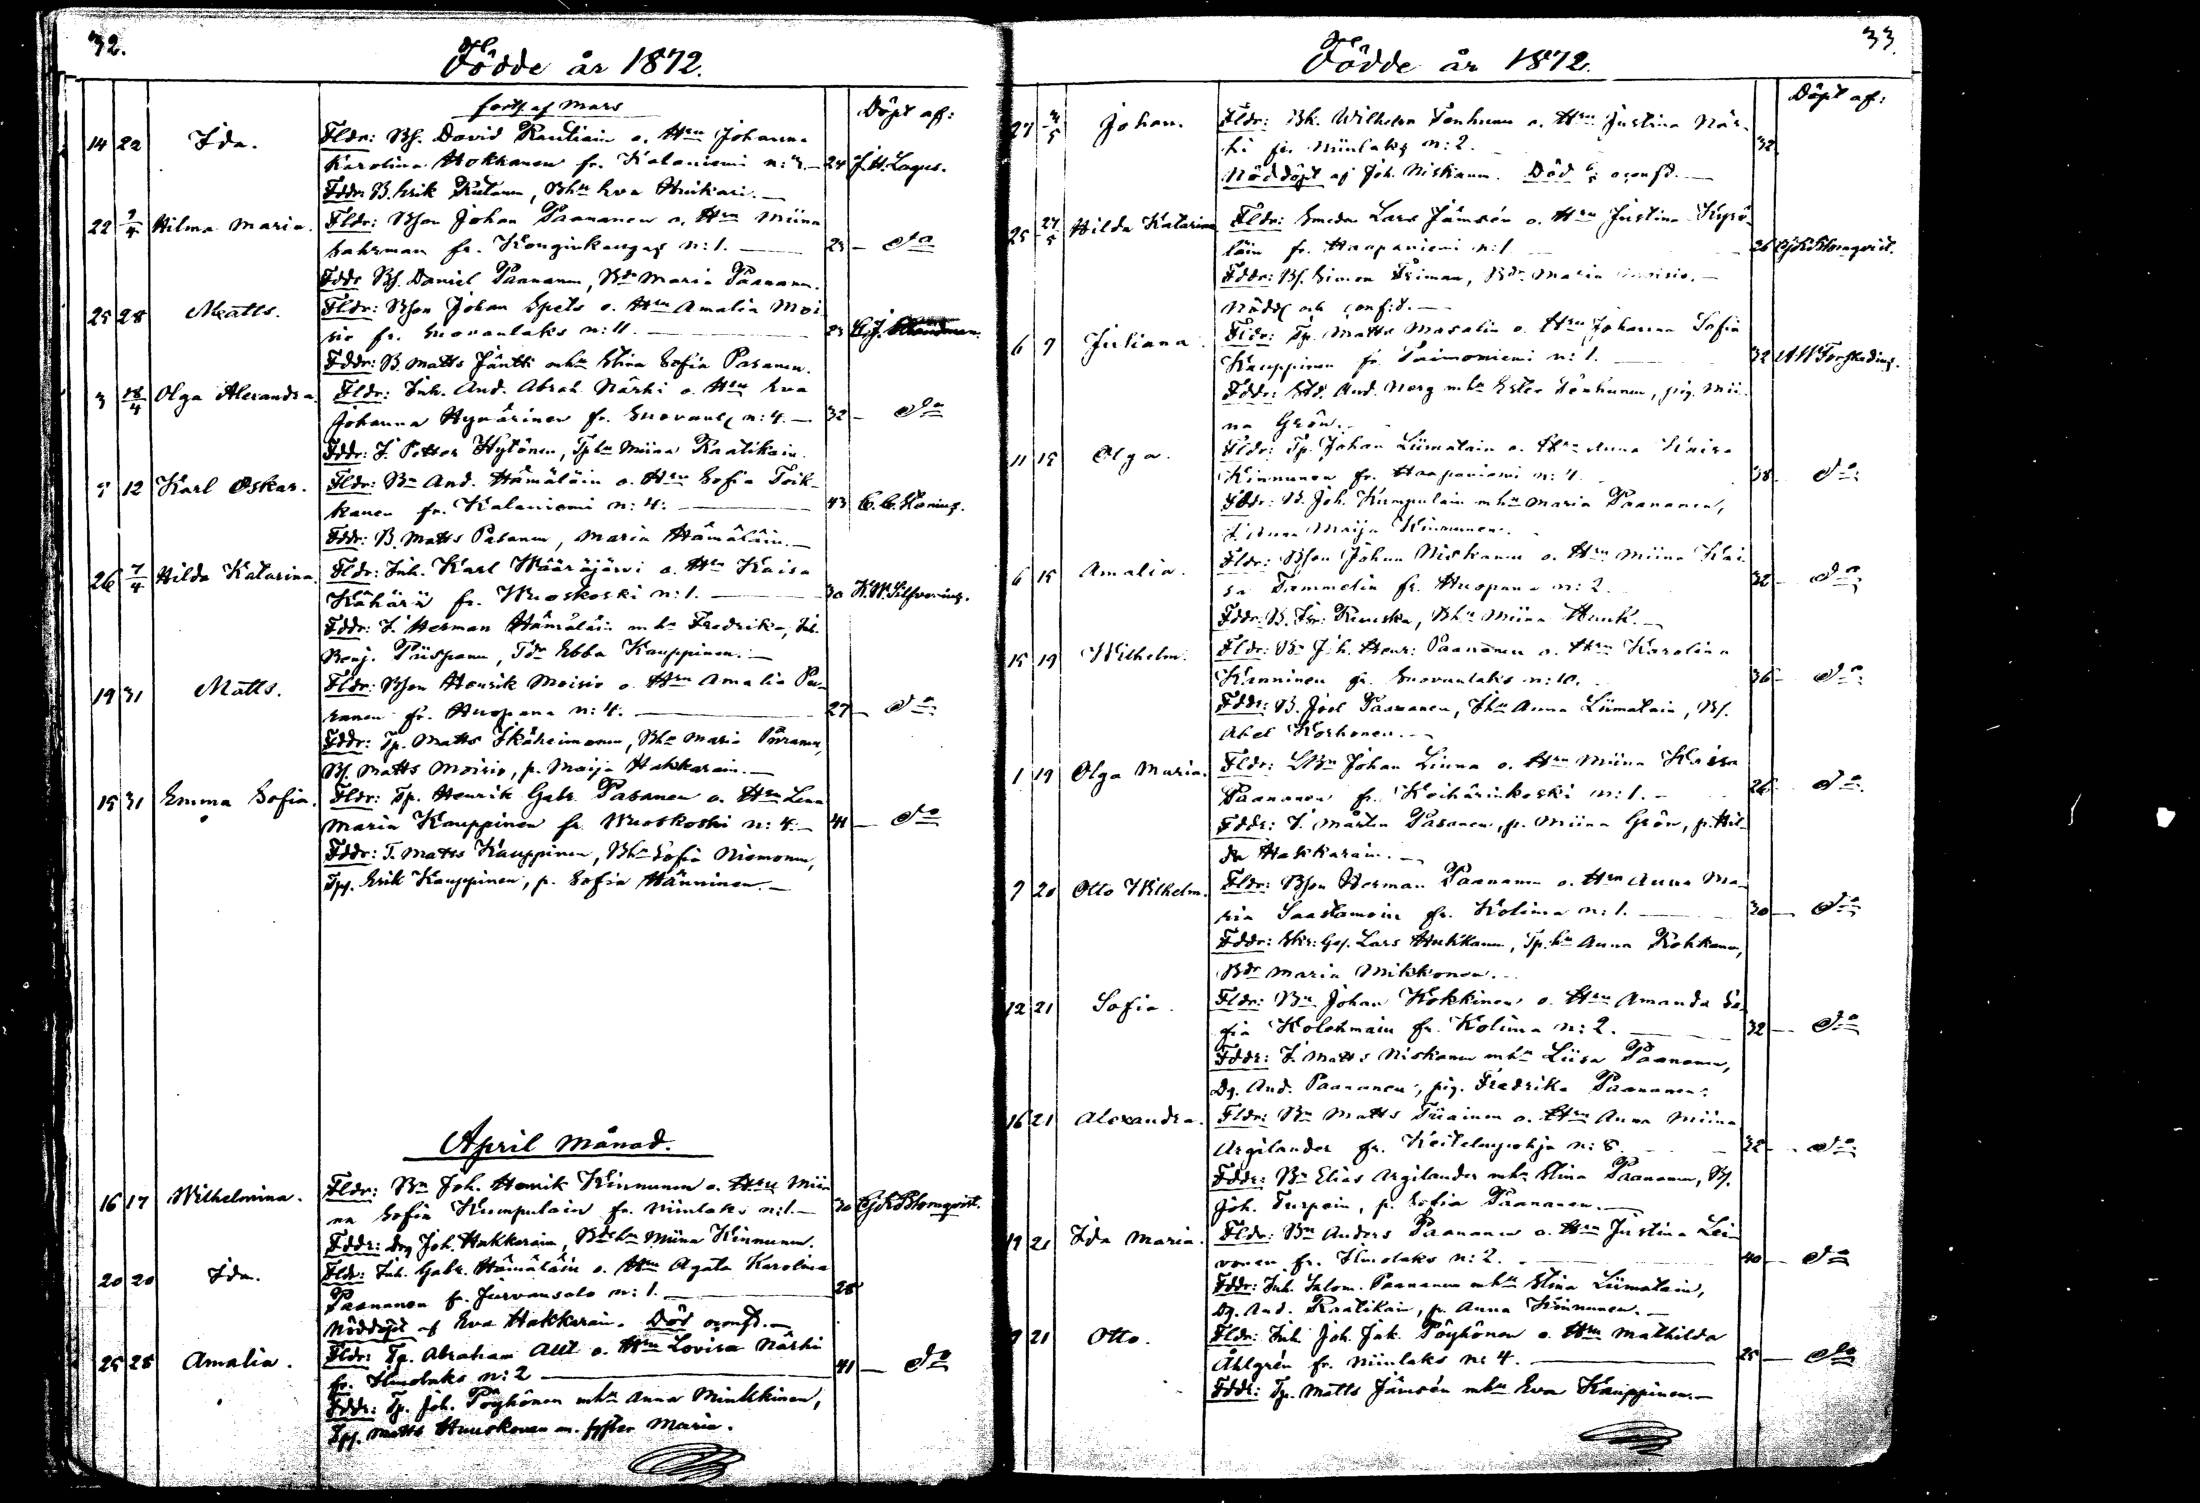 32.
Födde år 1872.
forts. af Mars
Döpt af:
14 22 Ida. Fldr: Bf. David Rautiain o. Hru Johanna
Karolina Hokkanen fr. Kalaniemi n: 24 J. H. Lagus.
Fddr: B. Erik , Bhu Eva
22 7/4 Hilma Maria. Fldr: Bson Johan Paananen o. Hru Miina
fr. Konginkangas n: 1. 23 Do
Fddr Bf. Daniel Paananen, Bdr Maria Paananen.
25 28 Matts. Fldr: Bson Johan Spets o. Hru Amalia Moi
sio fr. Suovanlaks n: 11. 23
Fddr: B. Matts Jäntti mhu Stina Sofia Pasanen.
3 18/4 Olga Alexandra. Fldr: Inh. And. Abrah. Närhi o. Hru Eva
Johanna Hyvärinen fr. Suovanl. n: 4. 32 Do
Fddr: I. Petter Hytönen, Tphu Miina Raatikain.
5 12 Karl Oskar. Fldr: Bn And. Hämäläin o. Hru Sofia Toik-
kanen fr. Kalaniemi n: 4. 43
Fddr: B. Matts Pasanen, Maria Hämäläin.
26 7/4 Hilda Katarina. Fldr: Inh. Karl Määräjärvi o. Hru Kaisa
Kähärä fr. Wuoskoski n: 1. 30
Fddr: I. Herman Hämäläin mhu Fredrika, Inh.
Benj. Piispanen, Tdr Ebba Kauppinen.
19 31 Matts. Fldr: Bson Henrik Moisio o. Hru Amalia Pa-
sanen fr. Huopana n: 4. 27 Do
Fddr: Tp. Matts Ikäheimonen, Bhu Maria Piiranen,
Bf. Matts Moisio, p. Maija Hakkarain.
15 31 Emma Sofia. Fldr: Tp. Henrik Gabr. Pasanen o. Hru Lena
Maria Kauppinen fr. Wuoskoski n: 4. 41 Do
Fddr: T. Matts Kauppinen, Bhu Sofia Niemonen,
Tpf. Erik Kauppinen, p. Sofia Hänninen.
April Månad.
16 17 Wilhelmina. Fldr: Bn Joh. Henrik Kinnunen o. Hru Mii
na Sofia Kumpulain fr. Niinlaks n: 1. 30 Blomqvist.
Fddr: Drg Joh. Hakkarain, Miina Kinnunen.
20 20 Ida. Fldr: Inh. Gabr. Hämäläin o. Hru Agata Karolina
Paananen fr. Jurvansalo n: 1. 28
Nöddöpt af Eva Hakkarain. Död
25 28 Amalia. Fldr: Tp. Abraham Alit o. Hru Lovisa Närhi
fr. Ilmolaks n: 2 41 Do
Fddr: Tp. Joh. Pöyhönen mhu Anna Minkkinen,
Tpf. Matts Huuskonen m. syster Maria.
33.
Födde år 1872.
Döpt af:
27 4/5 Johan. Fldr: Bk. Wilhelm Tenhunen o. Hru Justina När-
hi fr. Niinlaks n: 2. 32
Nöddöpt af Joh. Niskanen. Död
25 27/5 Hilda Katarina Fldr: Smeden Lars Jämsén o. Hru Justina Kyrö-
läin fr. Haapaniemi n: 1 26 Blomqvist.
Fddr: Bf. Simon Friman, Bdr Maria Moisio.
6 7 Juliana. Fldr: Tp. Matts Masalin o. Hru Johanna Sofia
Kauppinen fr. Taimoniemi n: 1. 32
Fddr: And. Norg mhu Ester Tenhunen, pig. Mii-
na Grön.
11 15 Olga. Fldr: Tp. Johan Liimatain o. Hru Anna Kaisa
Kinnunen fr. Haapaniemi n: 4. 38 Do
Fddr: B. Joh. Kumpulain mhu Maria Paananen,
I. Anna Maija Kinnunen.
6 15 Amalia. Fldr: Bson Johan Niskanen o. Hru Miina Kai
sa Tammelin fr. Huopana n: 2. 32 Do
Fddr: B. Isr. Ruuska, Bhu Miina
15 19 Wilhelm. Fldr: Bn Joh. Henr: Paananen o. Hru Karolina
Kanninen fr. Suovanlaks n: 10. 36 Do
Fddr: B. Joel Paananen, Ihu Anna Liimatain, Bf.
Abel Korhonen.
1 19 Olga Maria. Fldr: LBn Johan Linna o. Hru Miina Kaisa
Paananen fr. Keihärinkoski n: 1. 26 Do
Fddr: I. Mårten Pasanen, p. Miina Grön, p. Hil-
da Hakkarain.
7 20 Otto Wilhelm. Fldr: Bson Herman Paananen o. Hru Anna Ma-
ria Saastamoin fr. Kolima n: 1. 30 Do
Fddr: Skr: Ges. Lars , Tp. hu Anna Kokkonen,
Bdr Maria Mikkonen.
12 21 Sofia. Fldr: Bn Johan Kokkinen o. Hru Amanda So-
fia Kolehmain fr. Kolima n: 2. 32 Do
Fddr: I. Matts Niskanen mhu Liisa Paananen,
Dg. And. Paananen, pig. Fredrika Paananen.
16 21 Alexandra. Fldr: Bn Matts Tiiainen o. Hru Anna Miina
Argilander fr. Keitelepohja n: 8. 32 Do
Fddr: Bn Elias Argilander mhu Stina Paananen, Bf.
Joh. Turpein, p. Sofia Paananen.
19 21 Ida Maria. Fldr: Bn Anders Paananen o. Hru Justina Lei-
vonen fr. Ilmolaks n: 2. 40 Do
Fddr: Inh. Salom. Paananen mhu Stina Liimatain,
Dg. And. Raatikain, p. Anna Kinnunen.
9 21 Otto. Fldr: Inh. Joh. Jak. Pöyhönen o. Hru Mathilda
Åhlgrén fr. Niinlaks n: 4. 25 Do
Fddr: Tp. Matts Jämsén mhu Eva Kauppinen.